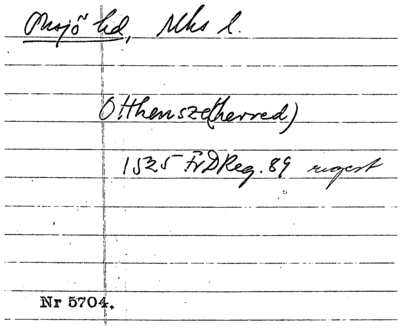 Onsjö hd, Mhs l.
Otthensze(herred)
1525 FrDReg. 89 regest
Nr 5704.